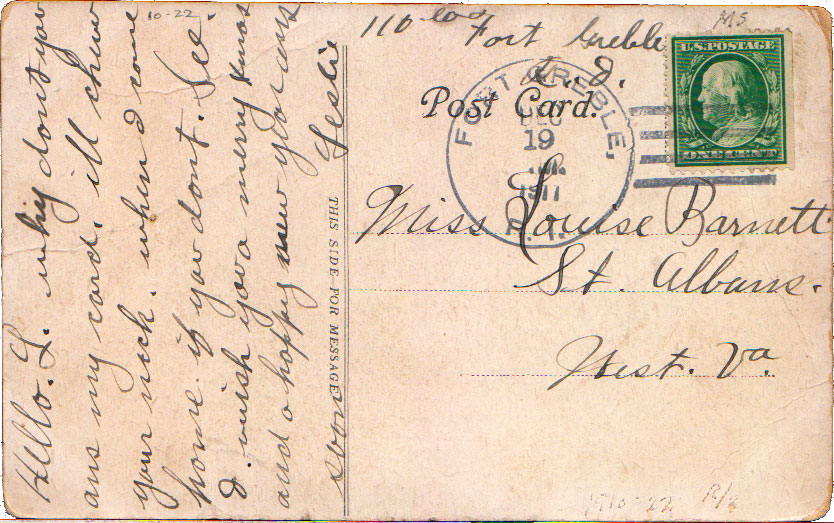 10-22
Hello. L. why dont you
ans my card. ill chew
your neck. when I come
home if you dont. See.
I wish you a merry Xmas
and a happy new year ans
soon Leslie
THIS SIDE FOR MESSAGE
110 Fort Greble
R. I.
MS
Post Card.
FORT GREBLE,
DEC
19
1911
R.I.
U.S. POSTAGE
ONE CENT
Miss Louise Barnett
St. Albans.
West. Va.
1910-22